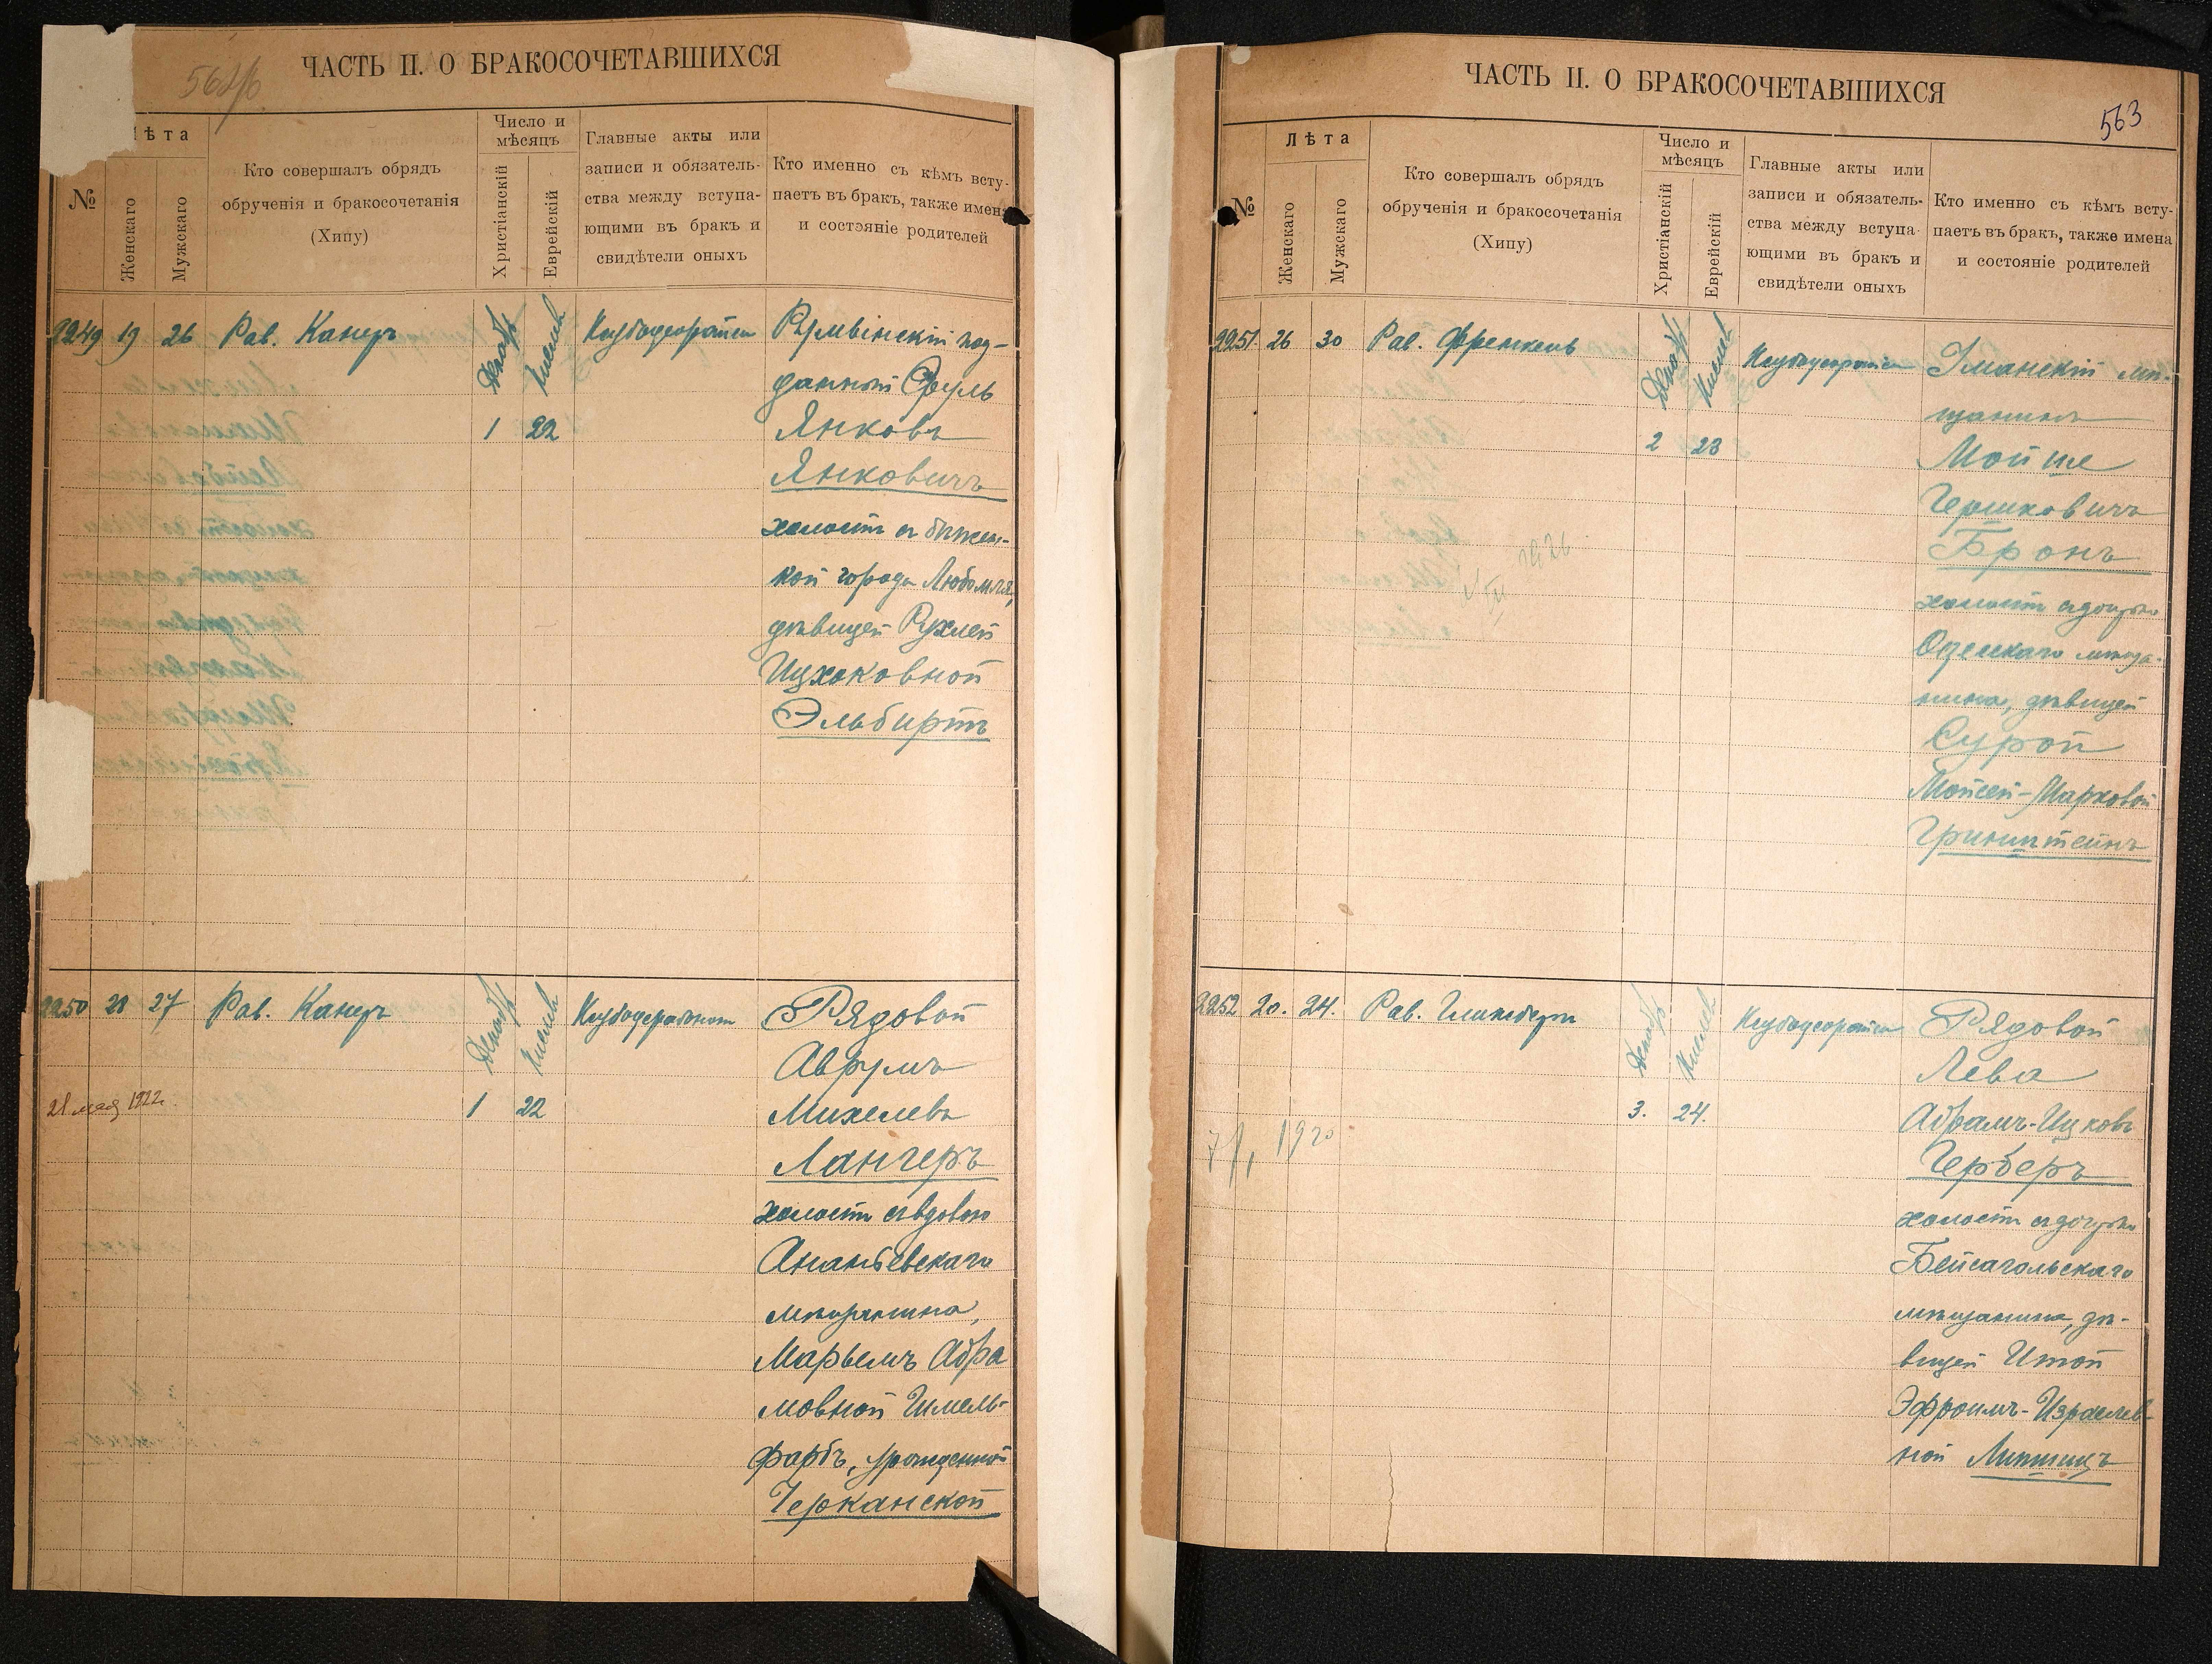 ЧАСТЬ II. О БРАКОСОЧЕТАВШИХСЯ
№
Лѣта
Женскаго
Мужскаго
Кто совершалъ обрядъ
обрученія и бракосочетанія
(Хипу)
Число и
мѣсяцъ
Христіанскій
Еврейскій
Главные акты или
записи и обязатель-
ства между вступа-
ющими въ бракъ и
свидѣтели оныхъ
Кто именно съ кѣмъ всту-
паетъ въ бракъ, также имена
и состэяніе родителей
2249 19 26 Рав. Канеръ
Декабрь Кислевъ
1 22
Румынскій под-
данный Сруль
Янковъ
Янковичъ
холостъ съ бѣжен-
кой города Любомля,
дѣвицей Рухлей
Ицхоковной
Эльбиртъ
2250 28 27 Рав. Канеръ
Декабрь Кислевъ
28 мая 1922г.
1 22
Рядовой
Аврумъ
Михелевъ
Лангеръ
холостъ съ вдовою
Ананьевскаго
мѣщанина,
Марьемъ Абра
мовной Шмель-
фарбъ, урожденной
Черканской
ЧАСТЬ II. О БРАКОСОЧЕТАВШИХСЯ
563
№
Лѣта
Женскаго
Мужскаго
Кто совершалъ обрядъ
обрученія и бракосочетанія
(Хипу)
Число и
мѣсяцъ
Христіанскій
Еврейскій
Главные акты или
записи и обязатель-
ства между вступа-
ющими въ бракъ и
свидѣтели оныхъ
Кто именно съ кѣмъ всту-
паетъ въ бракъ, также имена
и состояніе родителей
2251 26 30 Рав. Френкель
Декабрь Кислевъ
2 23
Уманскій мѣ-
щанинъ
Мойше
Гершковичъ
Бронъ
холостъ съ дочерью
Одесскаго мѣща-
нина, дѣвицей
Сурой
Мойсей-Марковой
Гринштейнъ
2252 20. 24. Рав. Гликсберг
Декабрь Кислевъ
3. 24.
1920
Рядовой
Лева
Абрамъ-Ицковъ
Герберъ
холостъ съ дочерью
Бейсагольскаго
мѣщанина, дѣ-
вицей Итой
Эфроимъ-Израилев-
ной Липшицъ